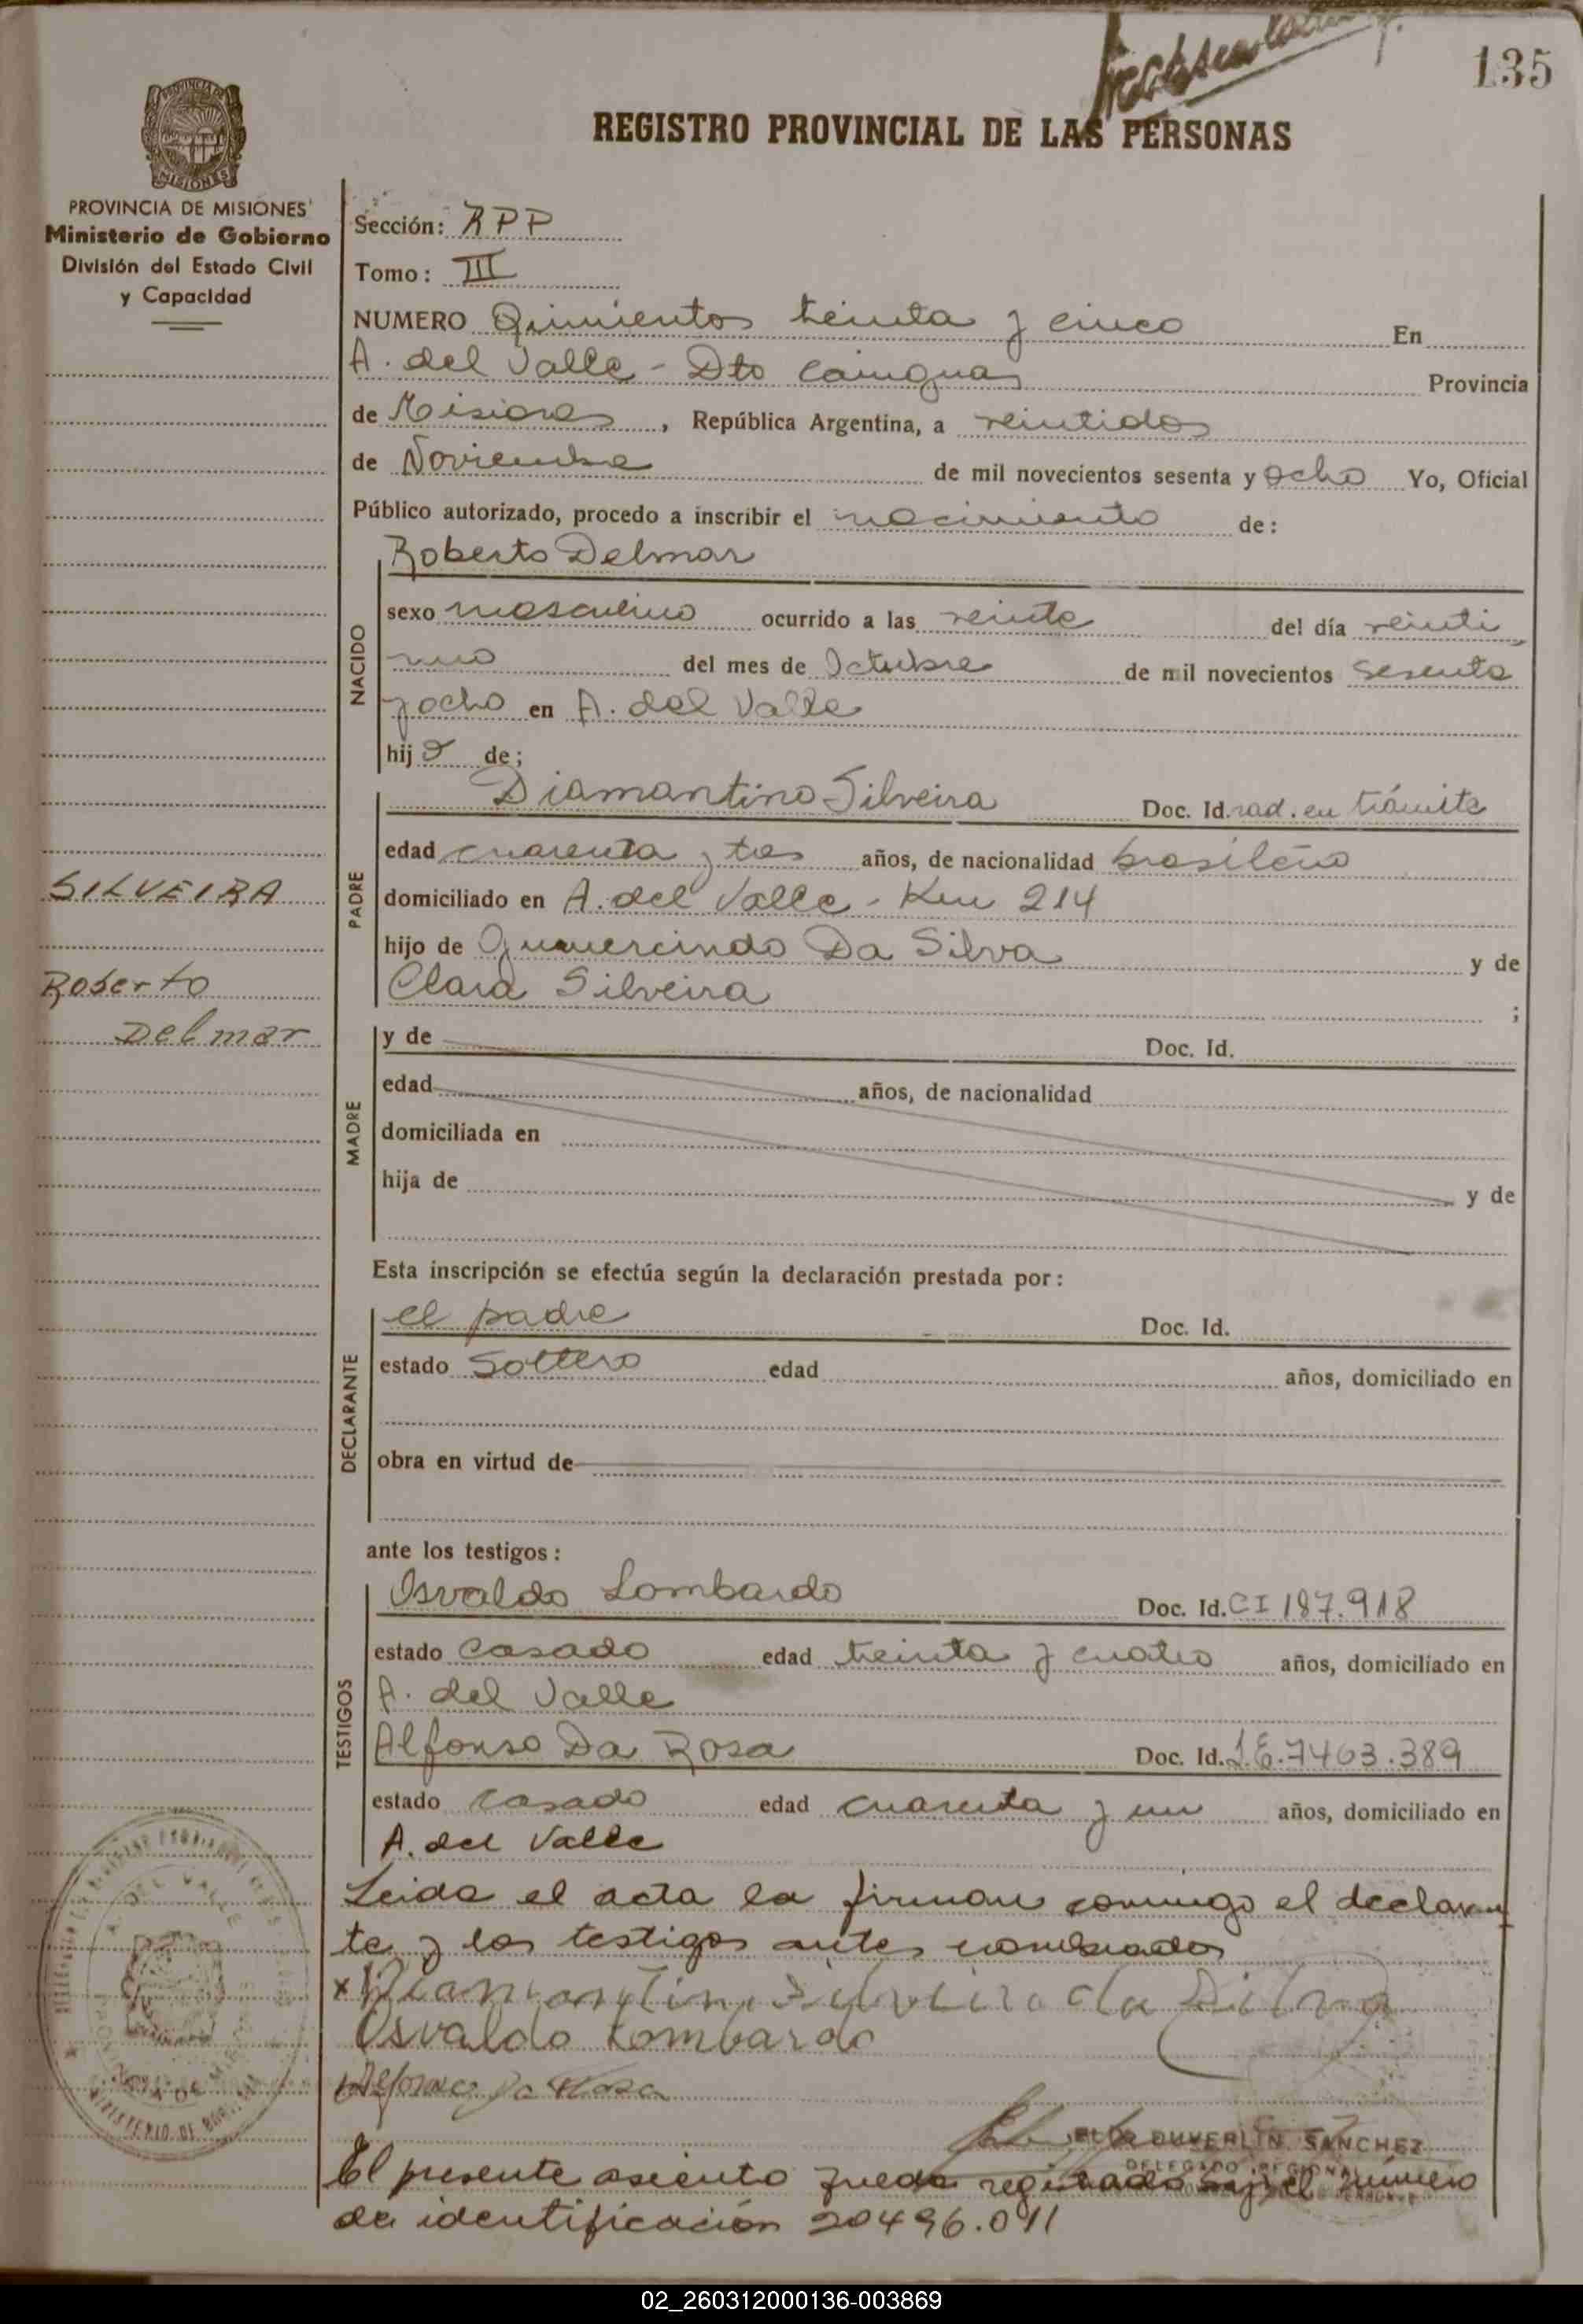 135
REGISTRO PROVINCIAL DE LAS PERSONAS
PROVINCIA DE MISIONES
Ministerio de Gobierno
División del Estado Civil
y Capacidad
Sección: RPP
Tomo: III
NUMERO Quinientos treinta y cinco En
A. del Valle - Dto Cainguas Provincia
de Misiones, República Argentina, a veintidos
de Noviembre de mil novecientos sesenta y ocho Yo, Oficial
Público autorizado, procedo a inscribir el nacimiento de:
Roberto Delmar
NACIDO
sexo masculino ocurrido a las veinte del día veinti
uno del mes de Octubre de mil novecientos sesenta
y ocho en A. del Valle
hijo de;
PADRE
Diamantino Silveira Doc. Id. rad. en trámite
edad cuarenta y tres años, de nacionalidad brasileño
domiciliado en A. del Valle - Km 214
hijo de Gumercindo Da Silva y de
Clara Silveira ;
SILVEIRA
Roberto
Delmar
MADRE
y de Doc. Id.
edad años, de nacionalidad
domiciliada en
hija de y de
Esta inscripción se efectúa según la declaración prestada por:
DECLARANTE
el padre Doc. Id.
estado Soltero edad años, domiciliado en
obra en virtud de
ante los testigos:
TESTIGOS
Osvaldo Lombardo Doc. Id. CI 187.918
estado casado edad treinta y cuatro años, domiciliado en
A. del Valle
Alfonso Da Rosa Doc. Id. L.E. 7463.389
estado casado edad cuarenta y un años, domiciliado en
A. del Valle
Leida el acta la firman conmigo el declaran
te y los testigos antes nombrados
x Diamantino Silveira da Silva
Osvaldo Lombardo
Alfonso Da Rosa
DUVERLIN SANCHEZ
DELEGADO REGIONAL
El presente asiento queda registrado bajo el número
de identificación 20496.011
02_260312000136-003869